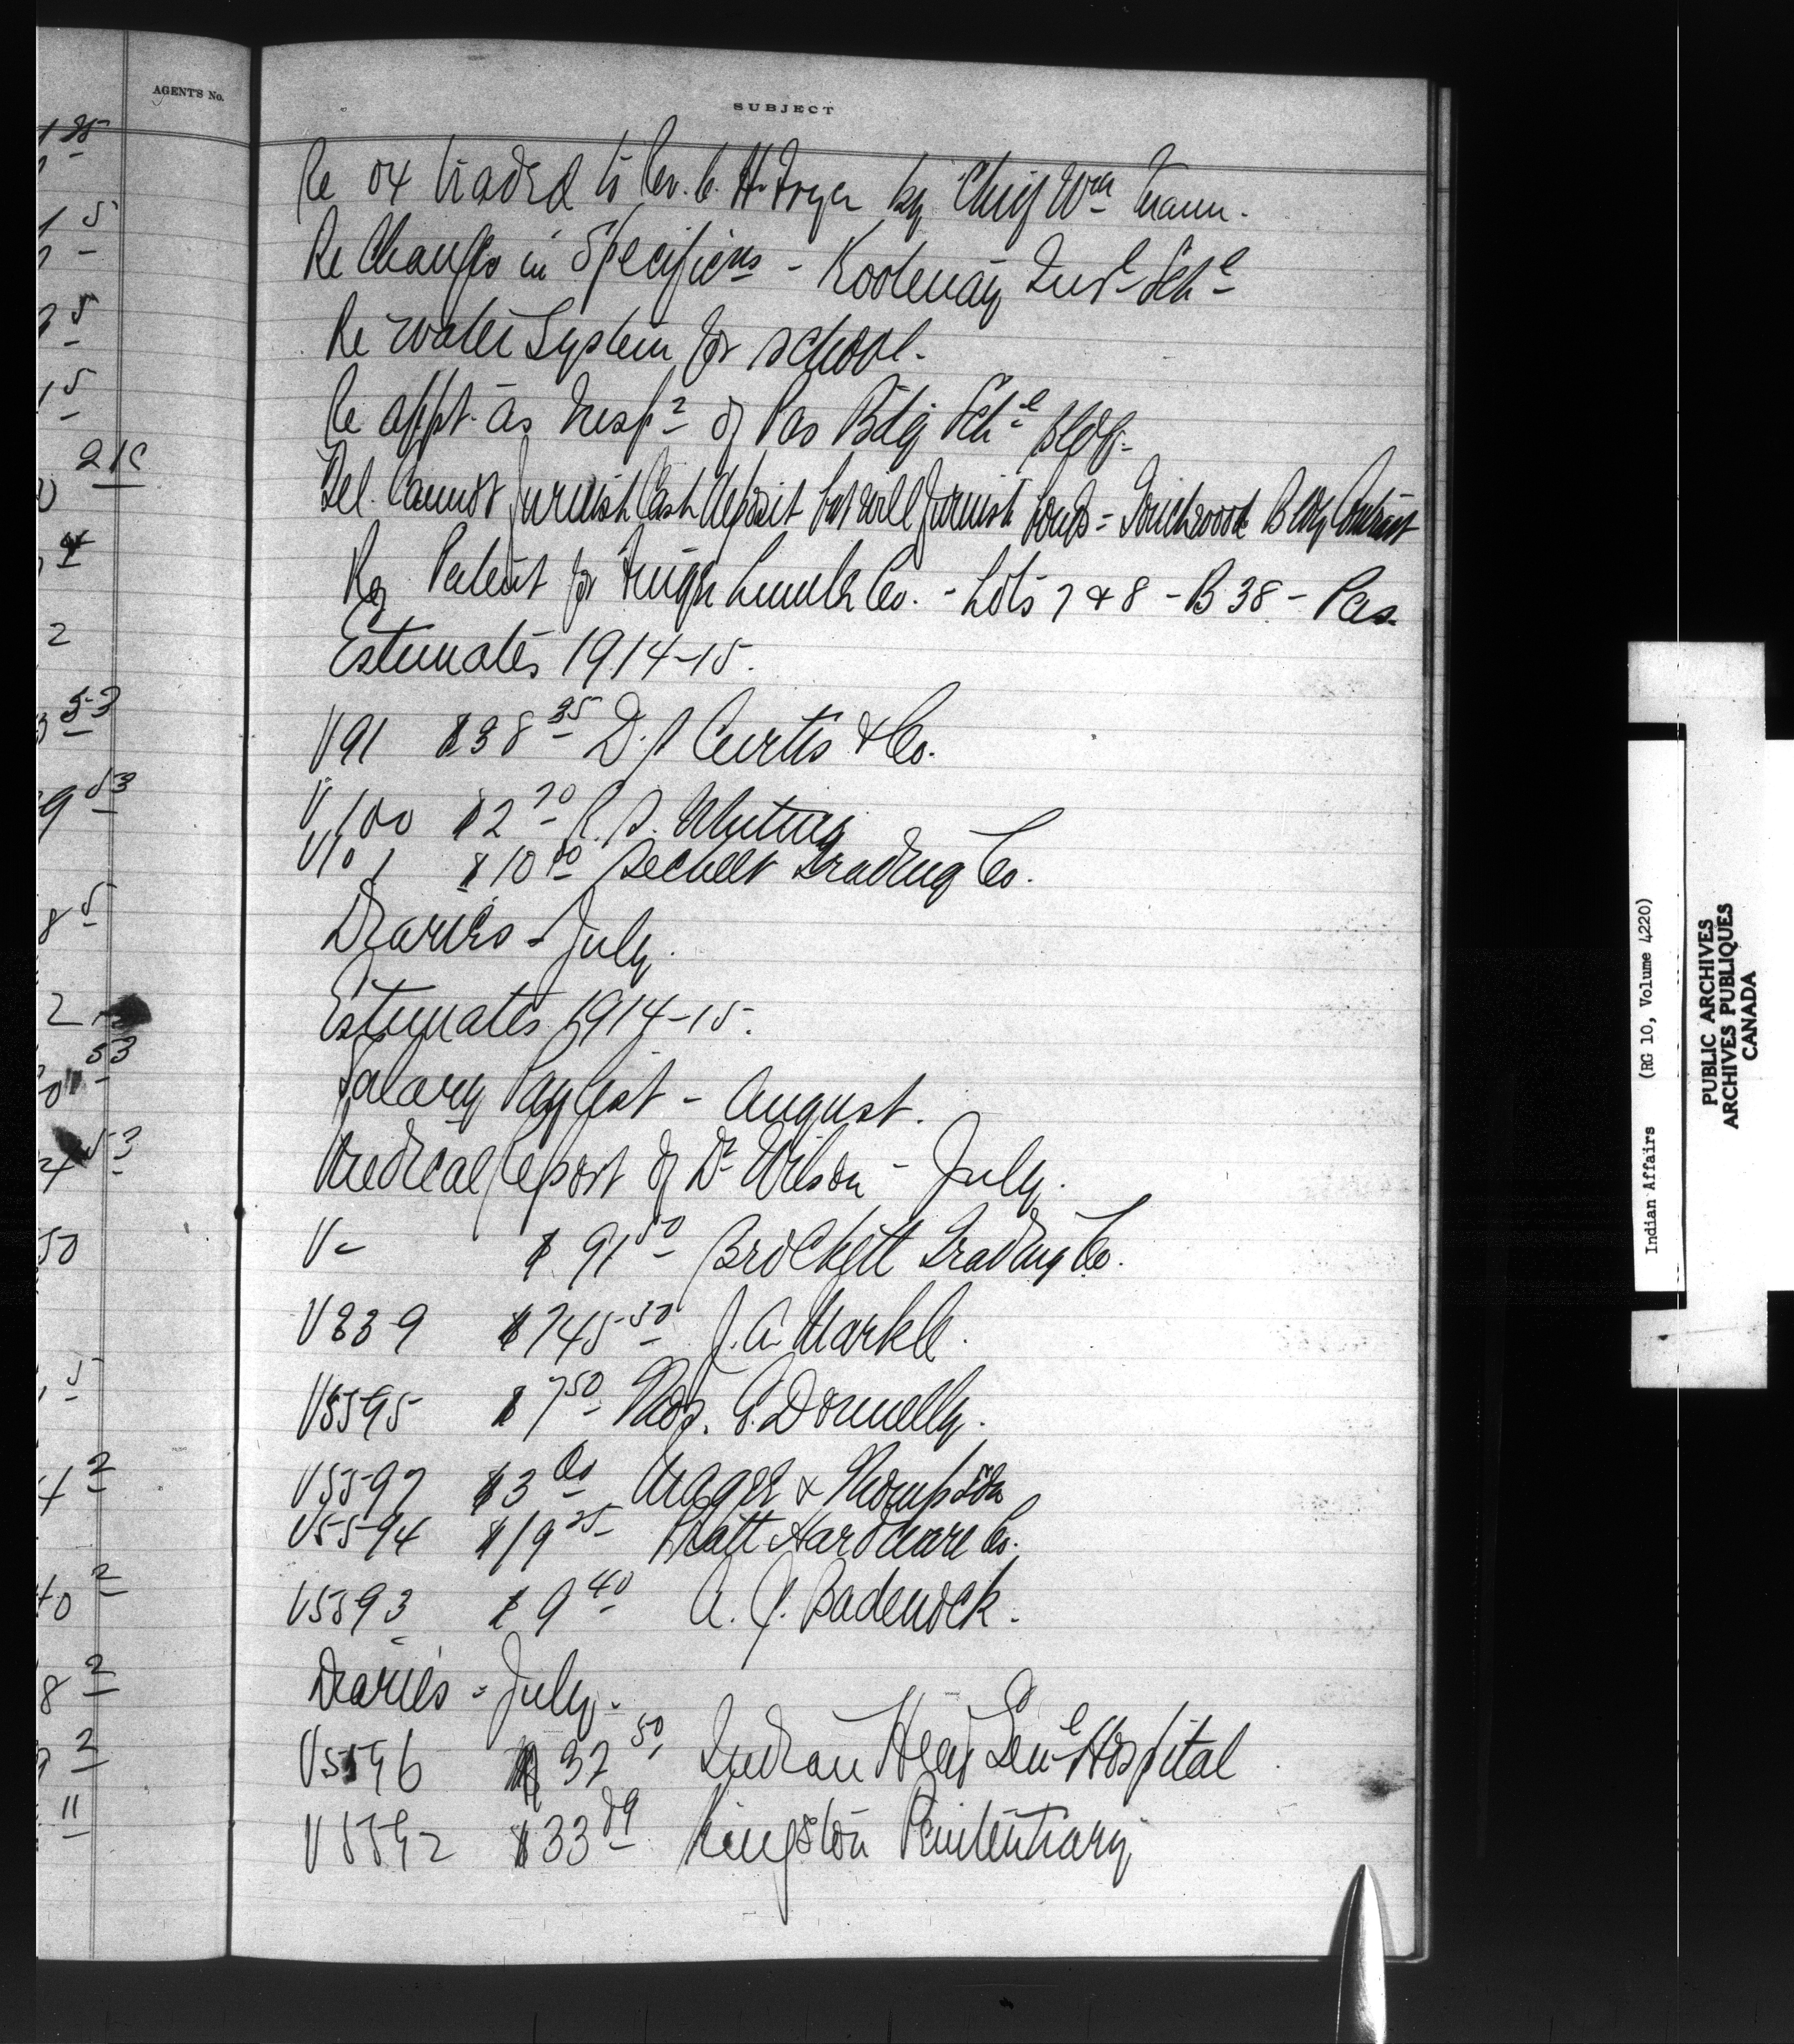 AGENT'S No.
SUBJECT
1 35
1 5
3 5
15
216
4
2
53
9 53
8 5
2
53
53
50
5
4 2
40 2
8 2
9 2
11
Re ox traded to Rev. C. H. Fryer by Chief Wm Mann.
Re Changes in Specificns - Kootenay Indl Schl
Re water System for school.
Re appt. as Inspr of Pas Bdg Schl Bldg.
Tel. Cannot furnish Cash deposit but will furnish bonds - Touchwood Bldg Contract
Re Patent for Lumber Co. - Lots 7 & 8 - B 38 - Pas.
Estimates 1914-15.
V91 $38 35 D. J. Curtis & Co.
V100 $2 70 R. S. Whiting
V101 $10 00 Sechelt Trading Co.
Diaries - July.
Estimates 1914-15.
Salary Paylist - August.
Medical Report of Dr Wilson - July.
V- $91 50 Brockett Trading Co.
V839 $745 30 J. A. Markle.
V5595 $7 50 Thos. E. Donnelly.
V5597 $3 00 & Thompson
V5594 $19 25 Pratt Hardware Co.
V5593 $9 40 A. J. Badenock.
Diaries - July.
V5596 $37 50 Indian Head Genl Hospital
V5592 $33 89 Kingston Penitentiary
Indian Affairs (RG 10, Volume 4220)
PUBLIC ARCHIVES
ARCHIVES PUBLIQUES
CANADA